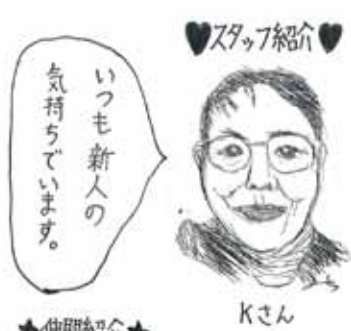 ♥スタッフ紹介♥
いつも新人の
気持ちでいます。
Kさん